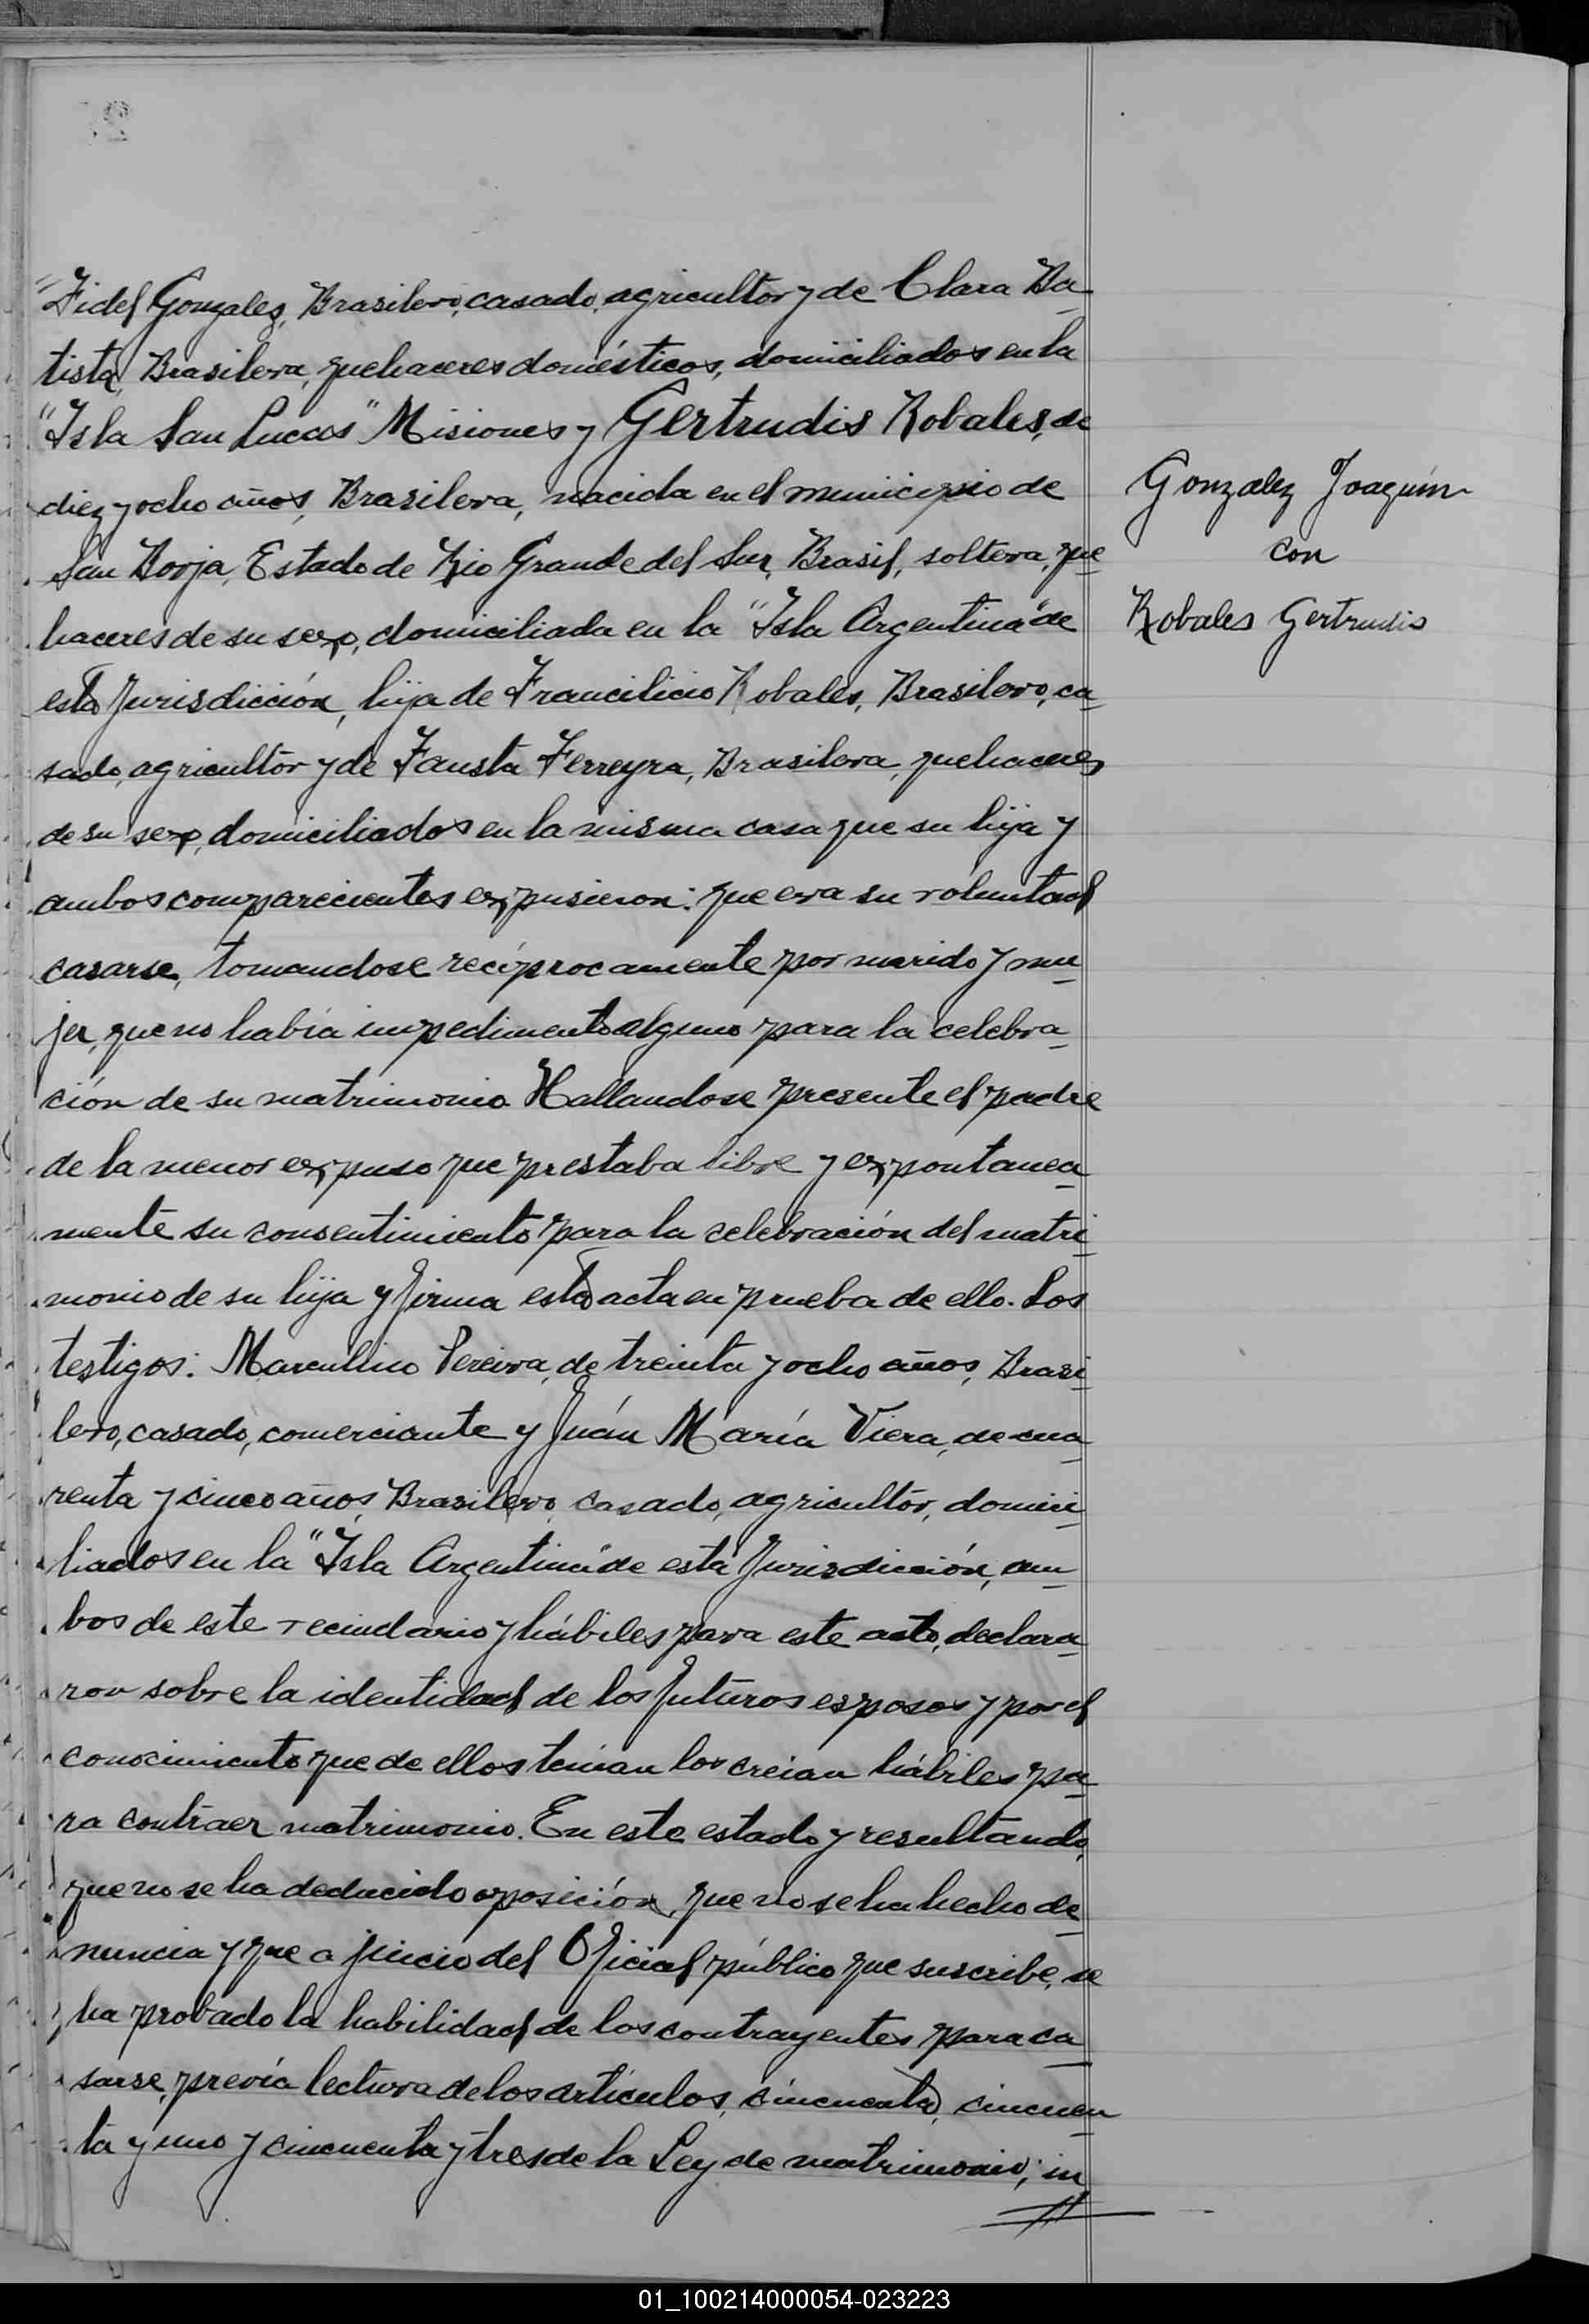 "Fidel Gonzalez, Brasilero, casado, agricultor y de Clara Ba-
tista, Brasilera, quehaceres domésticos, domiciliados en la
"Isla San Lucas" Misiones y Gertrudis Robales, de
diez y ocho años, Brasilera, nacida en el municipio de
San Borja, Estado de Rio Grande del Sur, Brasil, soltera, que-
haceres de su sexo, domiciliada en la "Isla Argentina" de
esta Jurisdicción, hija de Francilicio Robales, Brasilero, ca-
sado, agricultor y de Fausta Ferreyra, Brasilera, quehaceres
de su sexo, domiciliados en la misma casa que su hija y
ambos comparecientes expusieron: que era su voluntad
casarse, tomandose recíprocamente por marido y mu-
jer, que no había impedimento alguno para la celebra-
ción de su matrimonio. Hallandose presente el padre
de la menor expuso que prestaba libre y expontanea-
mente su consentimiento para la celebración del matri-
monio de su hija y firma esta acta en prueba de ello. Los
testigos: Marculino Pereira, de treinta y ocho años, Brasi-
lero, casado, comerciante y Juán María Viera, de cua-
renta y cinco años, Brasilero, casado, agricultor, domici-
liados en la "Isla Argentina" de esta Jurisdicción, am-
bos de este vecindario y hábiles para este acto, declara-
ron sobre la identidad de los futuros esposos y por el
conocimiento que de ellos tenian los creian hábiles pa-
ra contraer matrimonio. En este estado y resultando,
que no se ha deducido oposición, que no se ha hecho de-
nuncia y que a juicio del Oficial público que suscribe, se
ha probado la habilidad de los contrayentes para ca-
sarse, previa lectura de los artículos, cincuenta, cincuen-
ta y uno y cincuenta y tres de la Ley de matrimonio; in
Gonzalez Joaquín
con
Robales Gertrudis
01_100214000054-023223